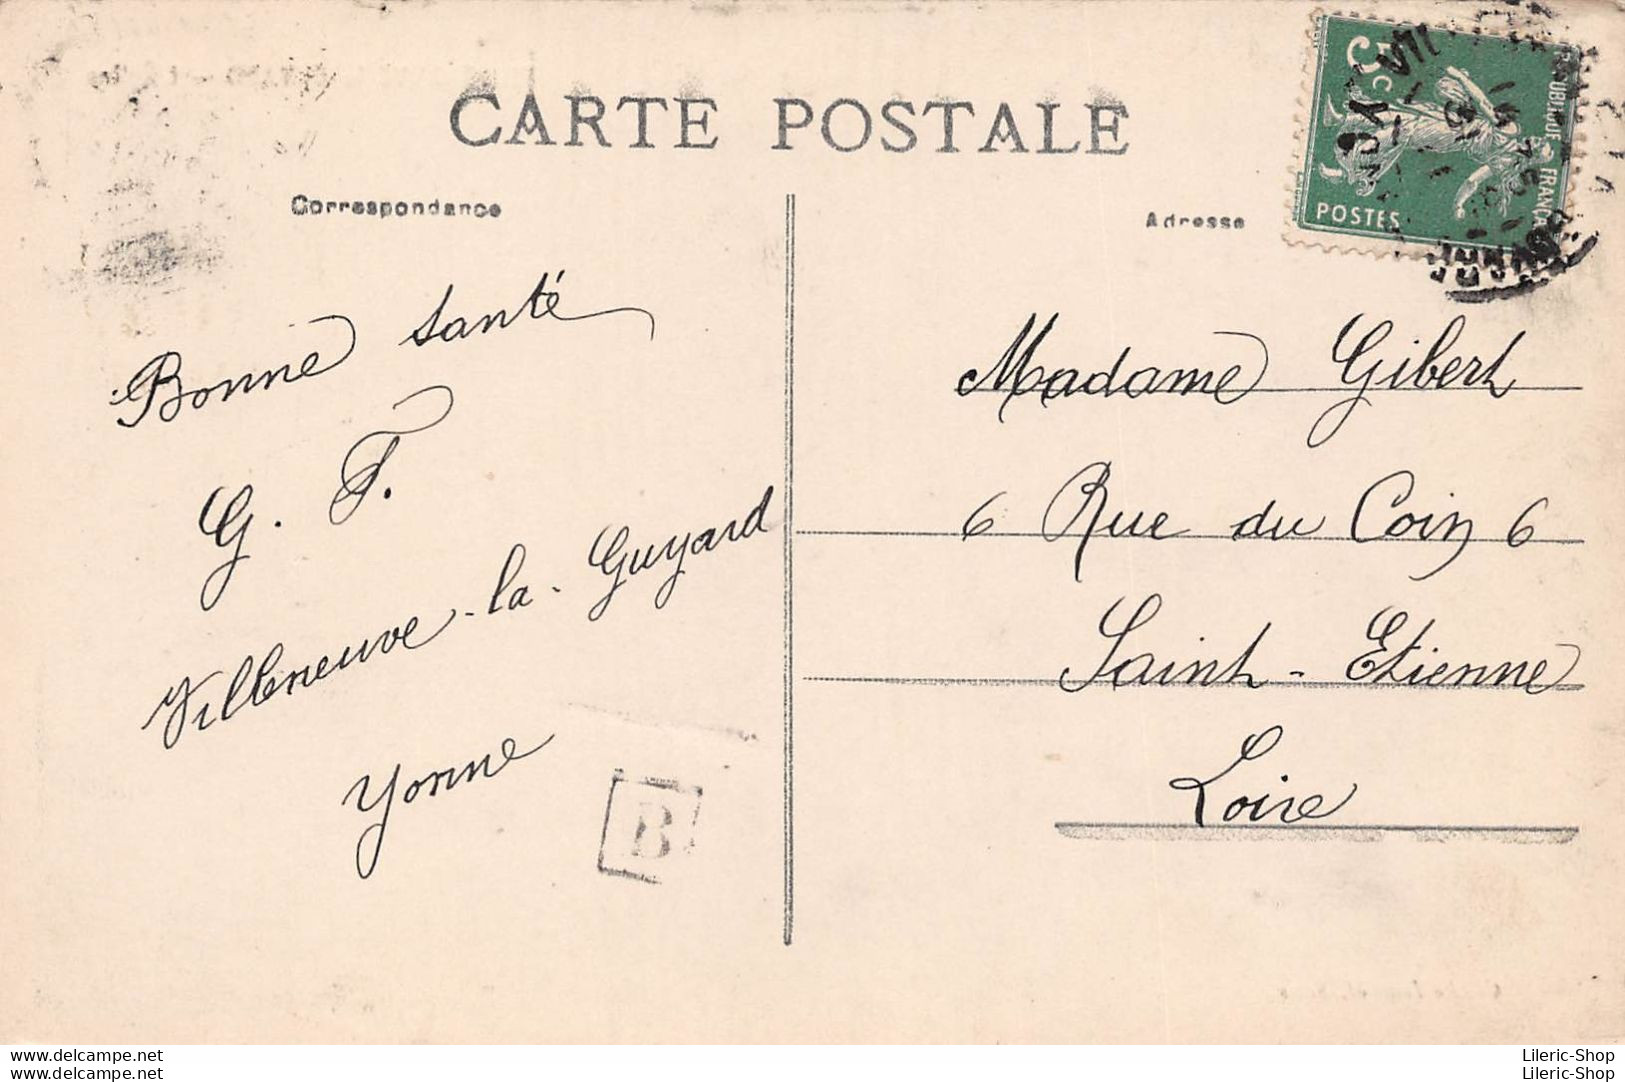 CARTE POSTALE
Correspondance
Adresse
5c
POSTES
Bonne santé
G. F.
Villeneuve-la-Guyard
Yonne
B
Madame Gibert
6 Rue du Coin 6
Saint-Etienne
Loire
www.delcampe.net
www.delcampe.net
Lileric-Shop
Lileric-Shop